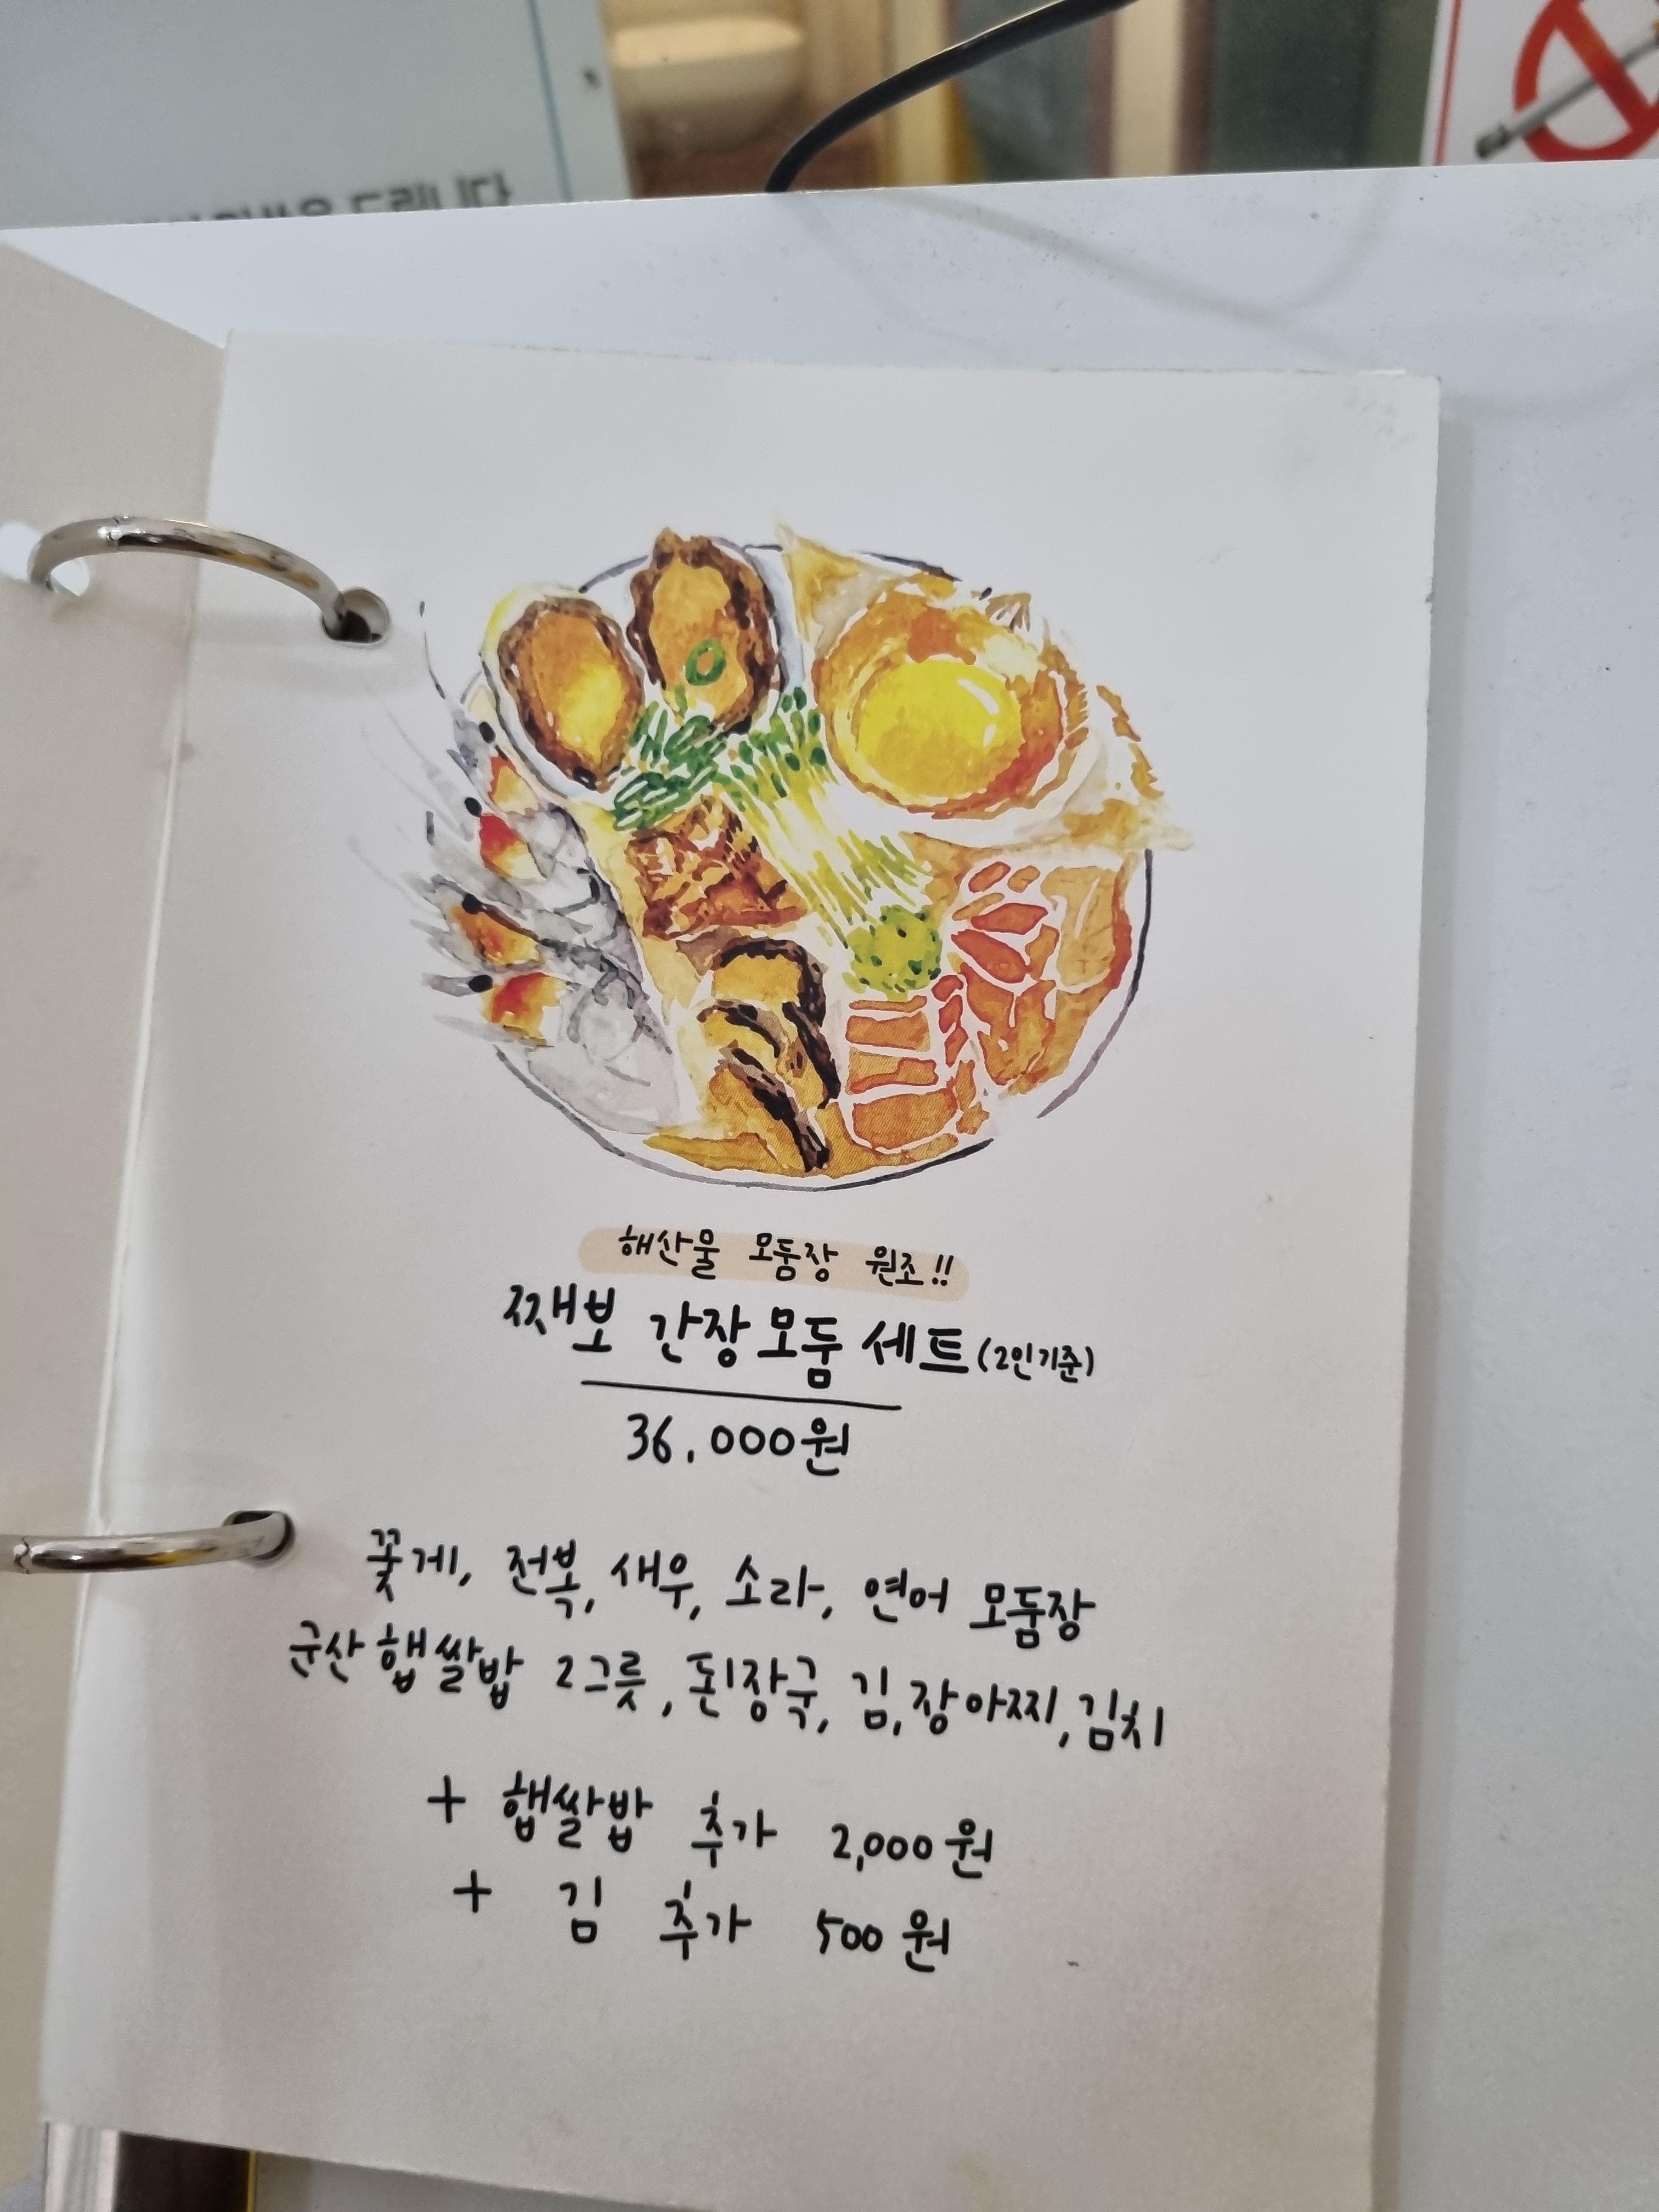 해산물 모둠장 원조!!
째보 간장모둠 세트(2인기준)
36.000원
꽃게, 전복, 새우, 소라, 연어 모둠장
군산 햅쌀밥 2그릇, 된장국, 김, 장아찌, 김치
+ 햅쌀밥 추가 2,000원
+ 김 추가 500원